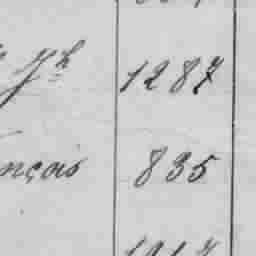 Jh 1287
nçois 835